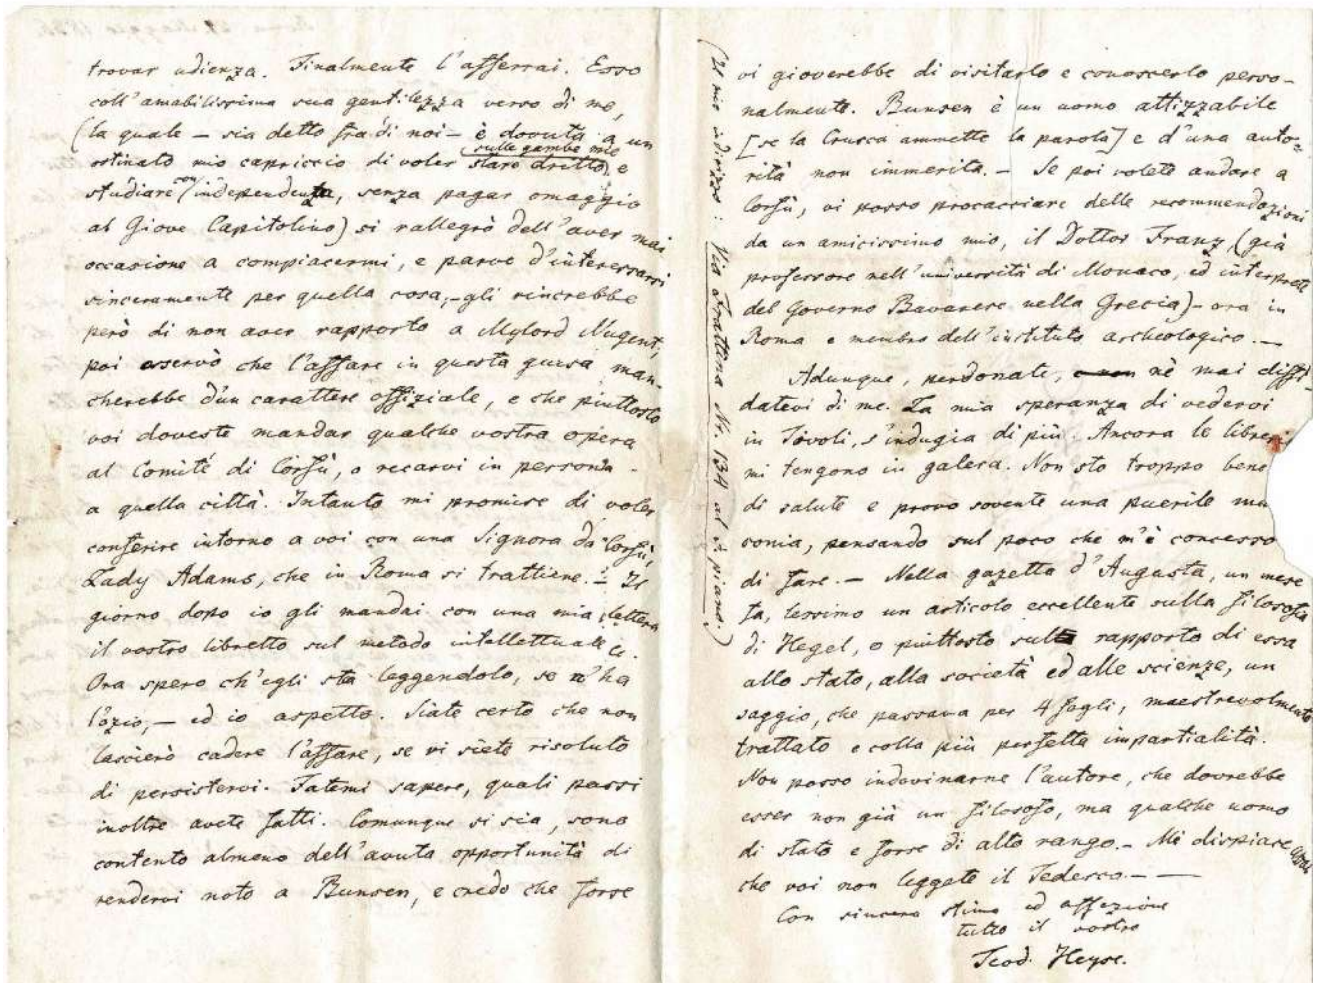 trovar udienza. Finalmente l'afferrai. Esso
coll'amabilissima sua gentilezza verso di me,
(la quale – sia detto fra di noi – è dovuta a un
ostinato mio capriccio di voler sulle gambe mie staro dritto, e
studiare con independenza, senza pagar omaggio
al Giove Capitolino) si rallegrò dell'aver mai
occasione a compiacermi, e parve d'interessarsi
sinceramente per quella cosa, – gli rincrebbe
però di non aver rapporto a Mylord Nugent;
poi osservò che l'affare in questa guisa man-
cherebbe d'un carattere offiziale, e che piuttosto
voi doveste mandar qualche vostra opera
al Comité di Corfù, o recarvi in persona
a quella città. Intanto mi promise di voler
conferire intorno a voi con una Signora da Corfù,
Lady Adams, che in Roma si trattiene. – Il
giorno dopo io gli mandai con una mia lettera
il vostro libretto sul metodo intellettuale
Ora spero ch'egli sta leggendolo, se n'ha
l'ozio, – ed io aspetto. Siate certo che non
lascierò cadere l'affare, se vi siete risoluto
di persistervi. Fatemi sapere, quali passi
inoltre avete fatti. Comunque si sia, sono
contento almeno dell'avuta opportunità di
rendervi noto a Bunsen, e credo che forse
(Il mio indirizzo: Via Frattina Nr. 134 al 3. piano.)
vi gioverebbe di visitarlo e conoscerlo perso-
nalmente. Bunsen è un uomo attizzabile
[se la Crusca ammette la parola] e d'una auto-
rità non immerita. – Se poi volete andare a
Corfù, vi posso procacciare delle recommendazioni
da un amicissimo mio, il Dottor Franz, (già
professore nell'università di Monaco, ed interprete
del Governo Bavarese nella Grecia) – ora in
Roma e membro dell'instituto archeologico. –
Adunque, perdonate, nè mai diffi-
datevi di me. La mia speranza di vedervi
in Tivoli, s'indugia di più. Ancora le librerie
mi tengono in galera. Non sto troppo bene
di salute e provo sovente una puerile
conia, pensando sul poco che m'è concesso
di fare. – Nella gazetta d'Augusta, un mese
fa, lessimo un articolo eccellente sulla filosofia
di Hegel, o piuttosto sul rapporto di essa
allo stato, alla società ed alle scienze, un
saggio, che passava per 4 fogli, maestrevolmente
trattato e colla più perfetta impartialità.
Non posso indovinarne l'autore, che dovrebbe
esser non già un filosofo, ma qualche uomo
di stato e forse di alto rango. – Mi dispiace
che voi non leggete il Tedesco. –
Con sincera stima ed affezione
tutto il vostro
Teod. Heyse.